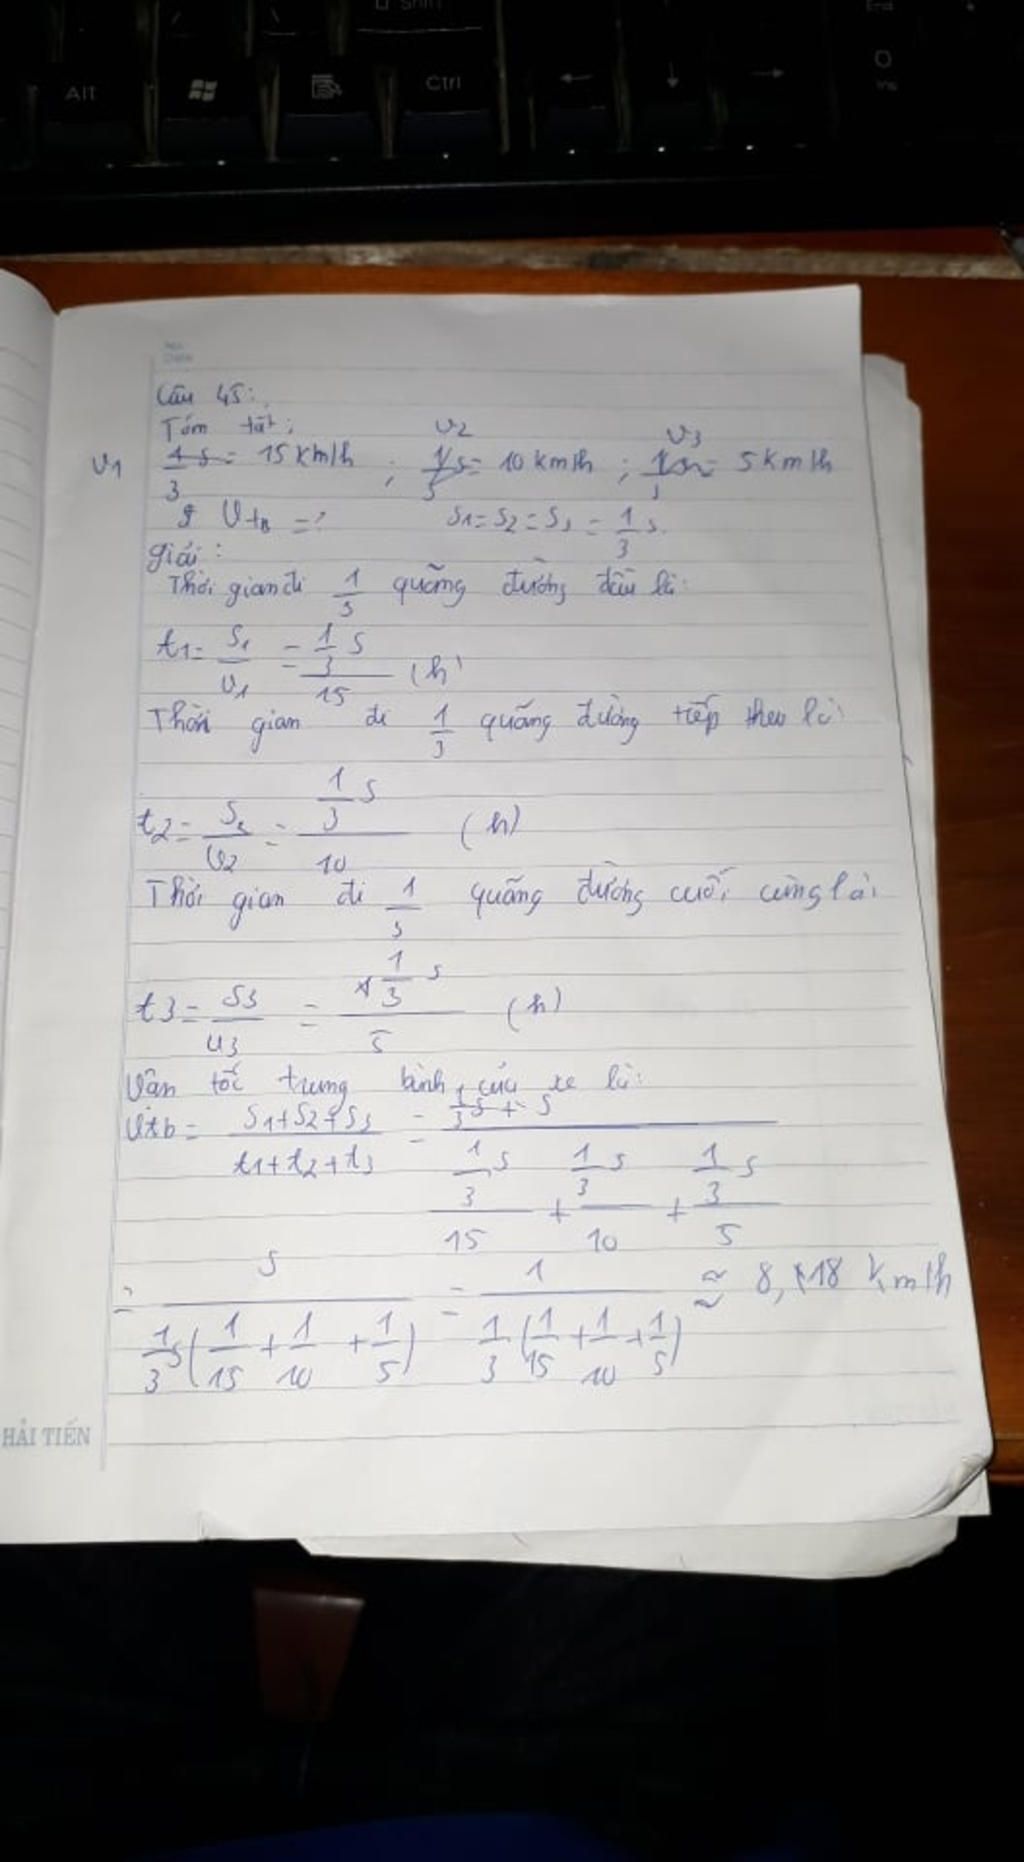 Shift
End
Alt
Ctrl
←
↓
→
0
Ins
No:
Date
Câu 45:
Tóm tắt:
v1 = 15 km/h ; v2 = 10 km/h ; v3 = 5 km/h
Vtb = ? S1 = S2 = S3 = 1/3 s.
giải:
Thời gian đi 1/3 quãng đường đầu là:
t1 = S1/v1 = (1/3 s)/15 (h)
Thời gian đi 1/3 quãng đường tiếp theo là:
t2 = S2/v2 = (1/3 s)/10 (h)
Thời gian đi 1/3 quãng đường cuối cùng là:
t3 = S3/v3 = (1/3 s)/5 (h)
Vận tốc trung bình của xe là:
Vtb = (S1+S2+S3)/(t1+t2+t3) = s/((1/3 s)/15 + (1/3 s)/10 + (1/3 s)/5)
= s/(1/3 s(1/15 + 1/10 + 1/5)) = 1/(1/3 (1/15 + 1/10 + 1/5)) ≈ 8,18 km/h
HẢI TIẾN